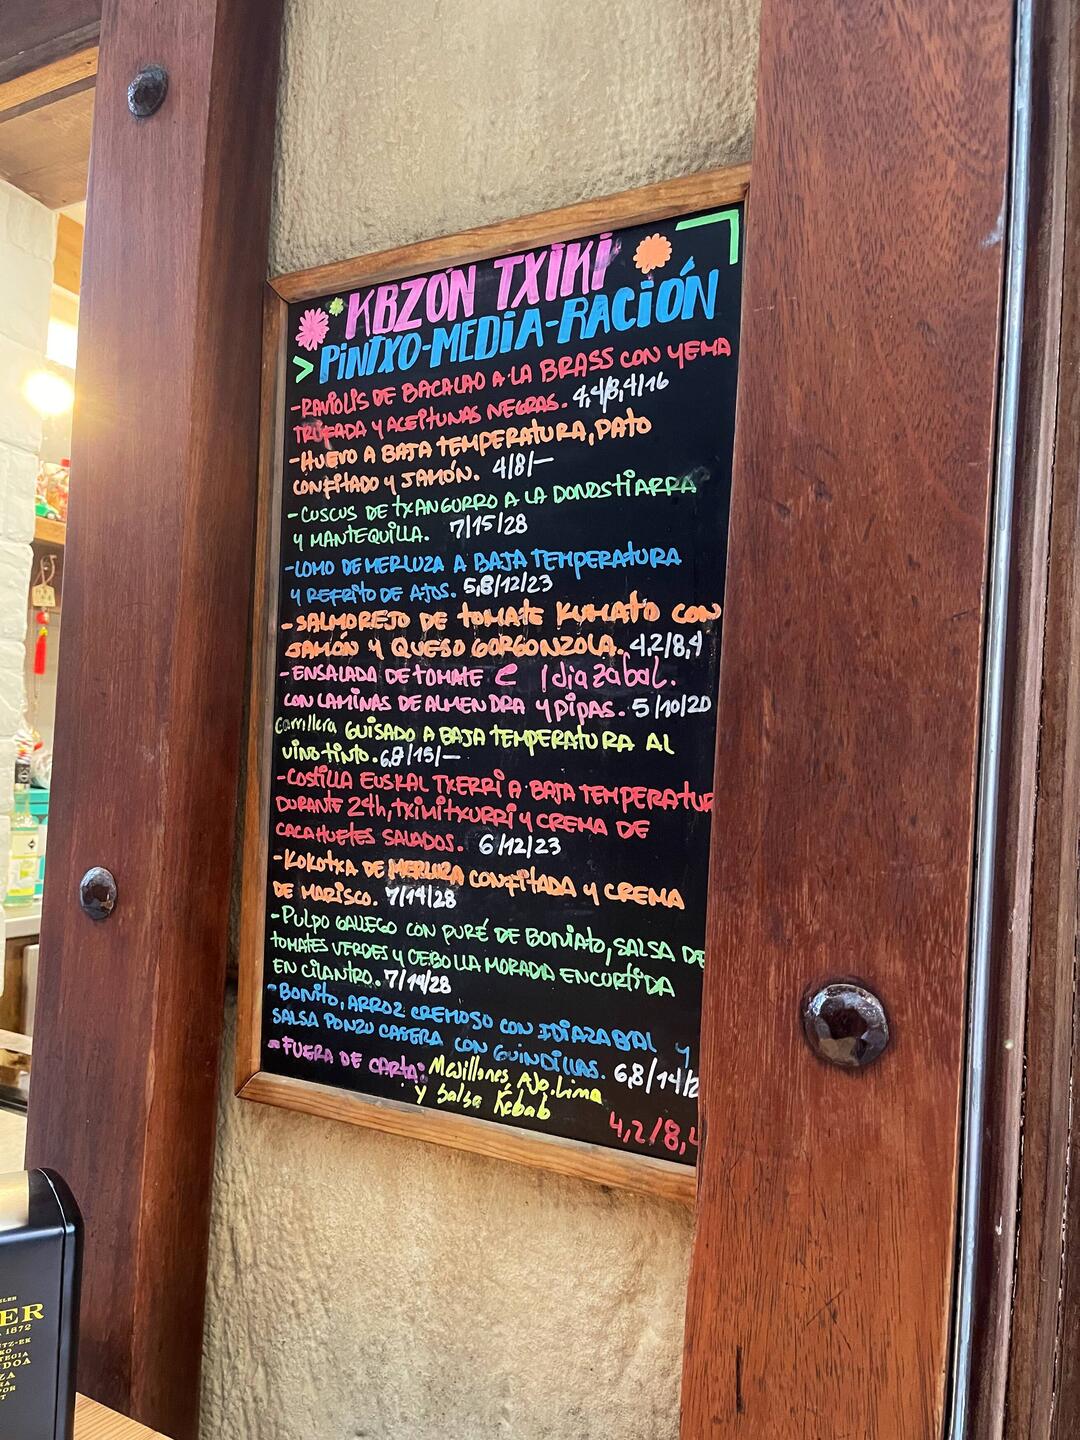 KBZÓN TXIKI
> PINTXO-MEDIA-RACIÓN
-RAVIOLIS DE BACALAO A LA BRASS CON YEMA
TRUFADA Y ACEITUNAS NEGRAS. 4,4/8,4/16
-HUEVO A BAJA TEMPERATURA, PATO
CONFITADO Y JAMÓN. 4/8/-
-CUSCUS DE TXANGURRO A LA DONOSTIARRA
Y MANTEQUILLA. 7/15/28
-LOMO DE MERLUZA A BAJA TEMPERATURA
Y REFRITO DE AJOS. 5,8/12/23
-SALMOREJO DE TOMATE KUMATO CON
JAMÓN Y QUESO GORGONZOLA. 4,2/8,4
-ENSALADA DE TOMATE E Idiazabal.
CON LAMINAS DE ALMENDRA Y PIPAS. 5/10/20
Carrillera GUISADO A BAJA TEMPERATURA AL
VINO TINTO. 6,8/15/-
-COSTILLA EUSKAL TXERRI A BAJA TEMPERATUR
DURANTE 24h, TXIMITXURRI Y CREMA DE
CACAHUETES SALADOS. 6/12/23
-KOKOTXA DE MERLUZA CONFITADA Y CREMA
DE MARISCO. 7/14/28
-PULPO GALLEGO CON PURÉ DE BONIATO, SALSA DE
TOMATES VERDES Y CEBOLLA MORADA ENCURTIDA
EN CILANTRO. 7/14/28
-BONITO, ARROZ CREMOSO CON IDIAZABAL Y
SALSA PONZU CASERA CON GUINDILLAS. 6,8/14/2
-FUERA DE CARTA: Mejillones, Ajo, Lima
y Salsa Kebab
4,2/8,4
ER
1872
DOA